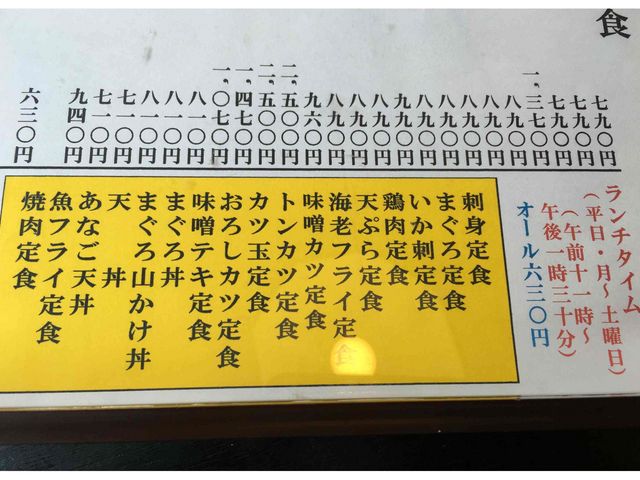 食
七九〇円
七九〇円
七九〇円
一、三七〇円
八九〇円
八九〇円
八九〇円
八九〇円
八九〇円
八九〇円
八九〇円
八九〇円
八九〇円
九六〇円
二、五〇〇円
二、五〇〇円
一、四七〇円
一、〇七〇円
八一〇円
八一〇円
八一〇円
七一〇円
七一〇円
九四〇円
六三〇円
ランチタイム
(平日・月〜土曜日)
(午前十一時〜
午後一時三十分)
オール六三〇円
刺身定食
まぐろ定食
いか刺定食
鶏肉定食
天ぷら定食
海老フライ定食
味噌カツ定食
トンカツ定食
カツ玉定食
おろしカツ定食
味噌テキ定食
まぐろ丼
まぐろ山かけ丼
天丼
あなご天丼
魚フライ定食
焼肉定食